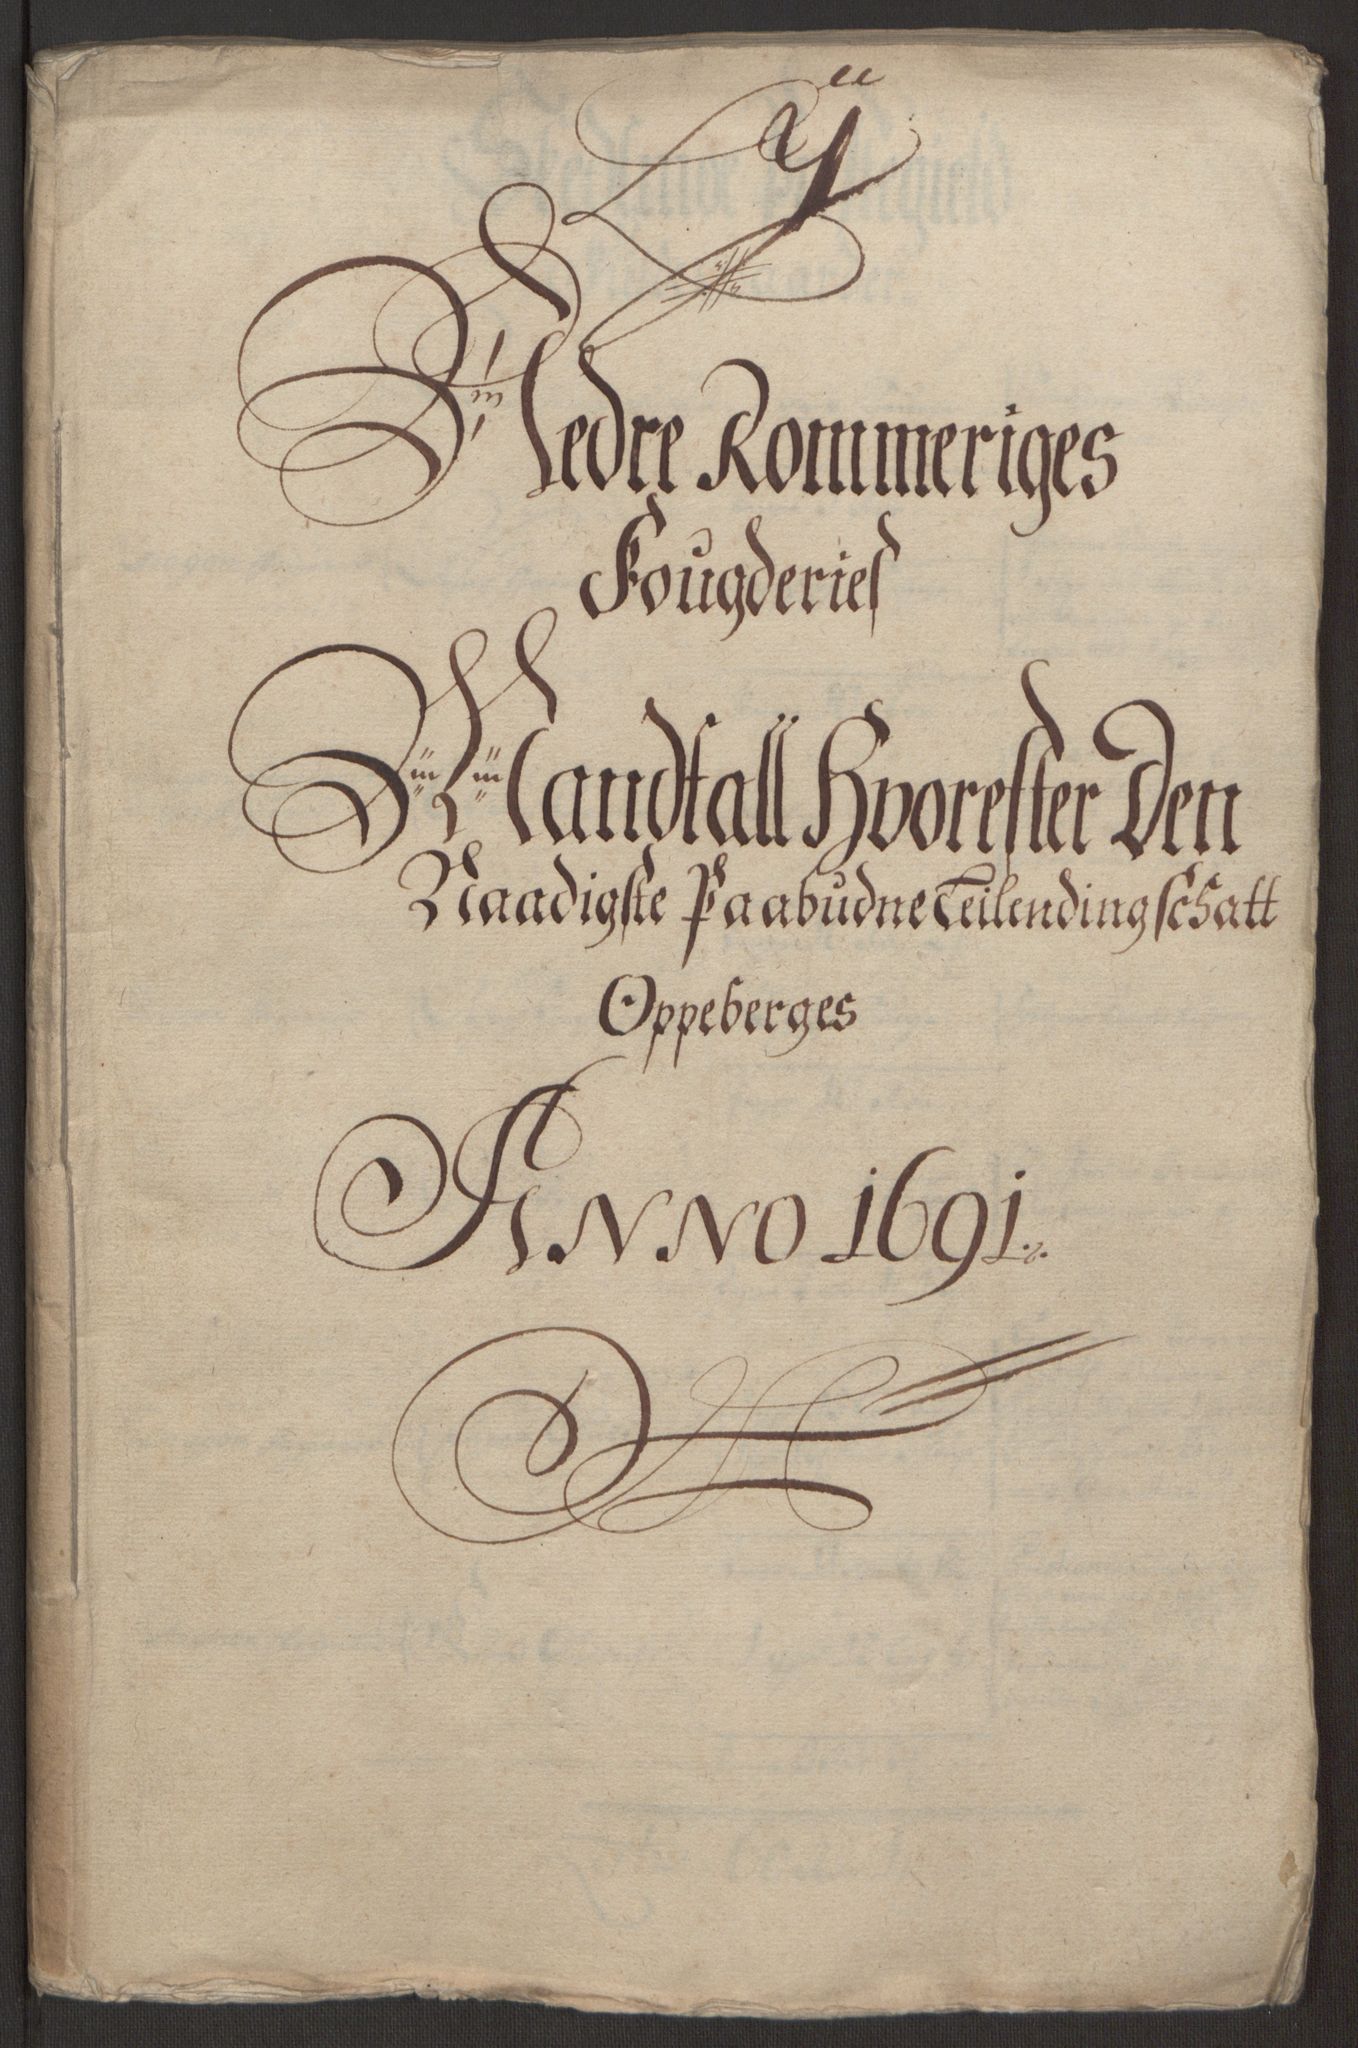 Nedre Rommeriges
Fougderies
Mandtall Hvorefter Den
Naadigste Paabudne Teilendingschatt
Oppeberges
ANNO 1691.